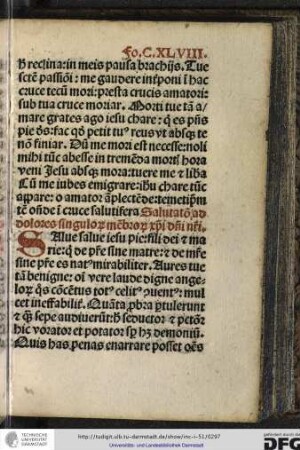 Fo.C.XLVIII.
reclina: in meis pausa brachijs. Tue
sctē passiōi: me gaudere
cruce tecū mori: presta crucis amatori:
sub tua cruce moriar. Morti tue tā a/
mare grates ago iesu chare: q es
pie ds: fac qđ petit tu⁹ reus vt absqꝫ te
nō finiar. Dū me mori est necesse: noli
mihi tūc abesse in tremēda mortꝭ hora
veni Jesu absqꝫ mora: tuere me ⁊ liba
Cū me iubes emigrare: ihū chare tūc
appare: o amator āplectēde: temetipm̄
tē onde ī cruce salutifera Salutatō ad
dolores singuloꝝ mēbroꝝ xpi dn̄i nr̄i.
SAlue salue iesu pie: fili dei ⁊ ma
rie: q̄ de pr̄e sine matre: ⁊ de mr̄e
sine pr̄e es nat⁹ mirabiliter. Aures tue
tā benigne: oī vere laude digne ange-
loꝝ qs cōcētus tot⁹ celit⁹ : mul
cet ineffabilis. Quāta pbra ptulerunt
⁊ q̄ sepe audiuerūt: seductor ⁊ pctōꝝ
hic vorator et potator sꝑ hꝫ demoniū.
Quis has penas enarrare posset
TECHNISCHE
UNIVERSITÄT
DARMSTADT
http://tudigit.ulb.tu-darmstadt.de/show/inc-i-51/0297
Universitäts- und Landesbibliothek Darmstadt
gefördert durch die
DFG